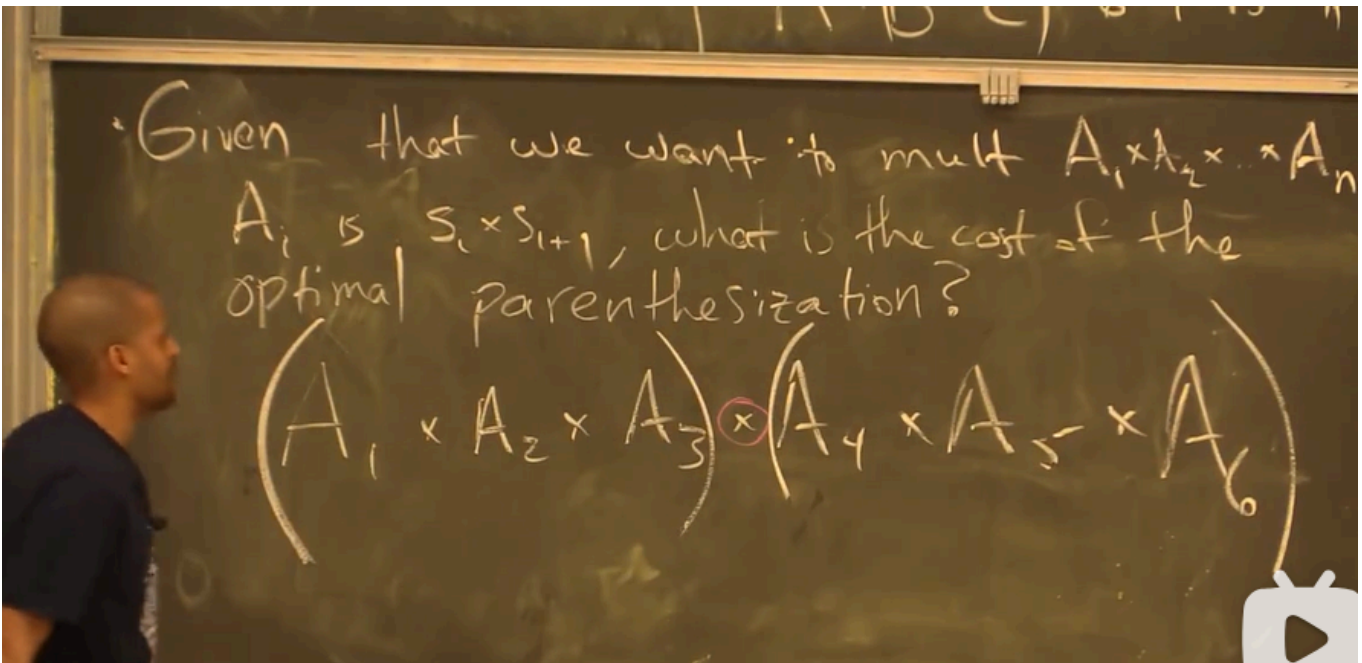 · Given that we want to mult A₁×A₂× ·· ×Aₙ
Aᵢ is Sᵢ×Sᵢ₊₁, what is the cost of the
optimal parenthesization?
(A₁ × A₂ × A₃) × (A₄ × A₅ × A₆)